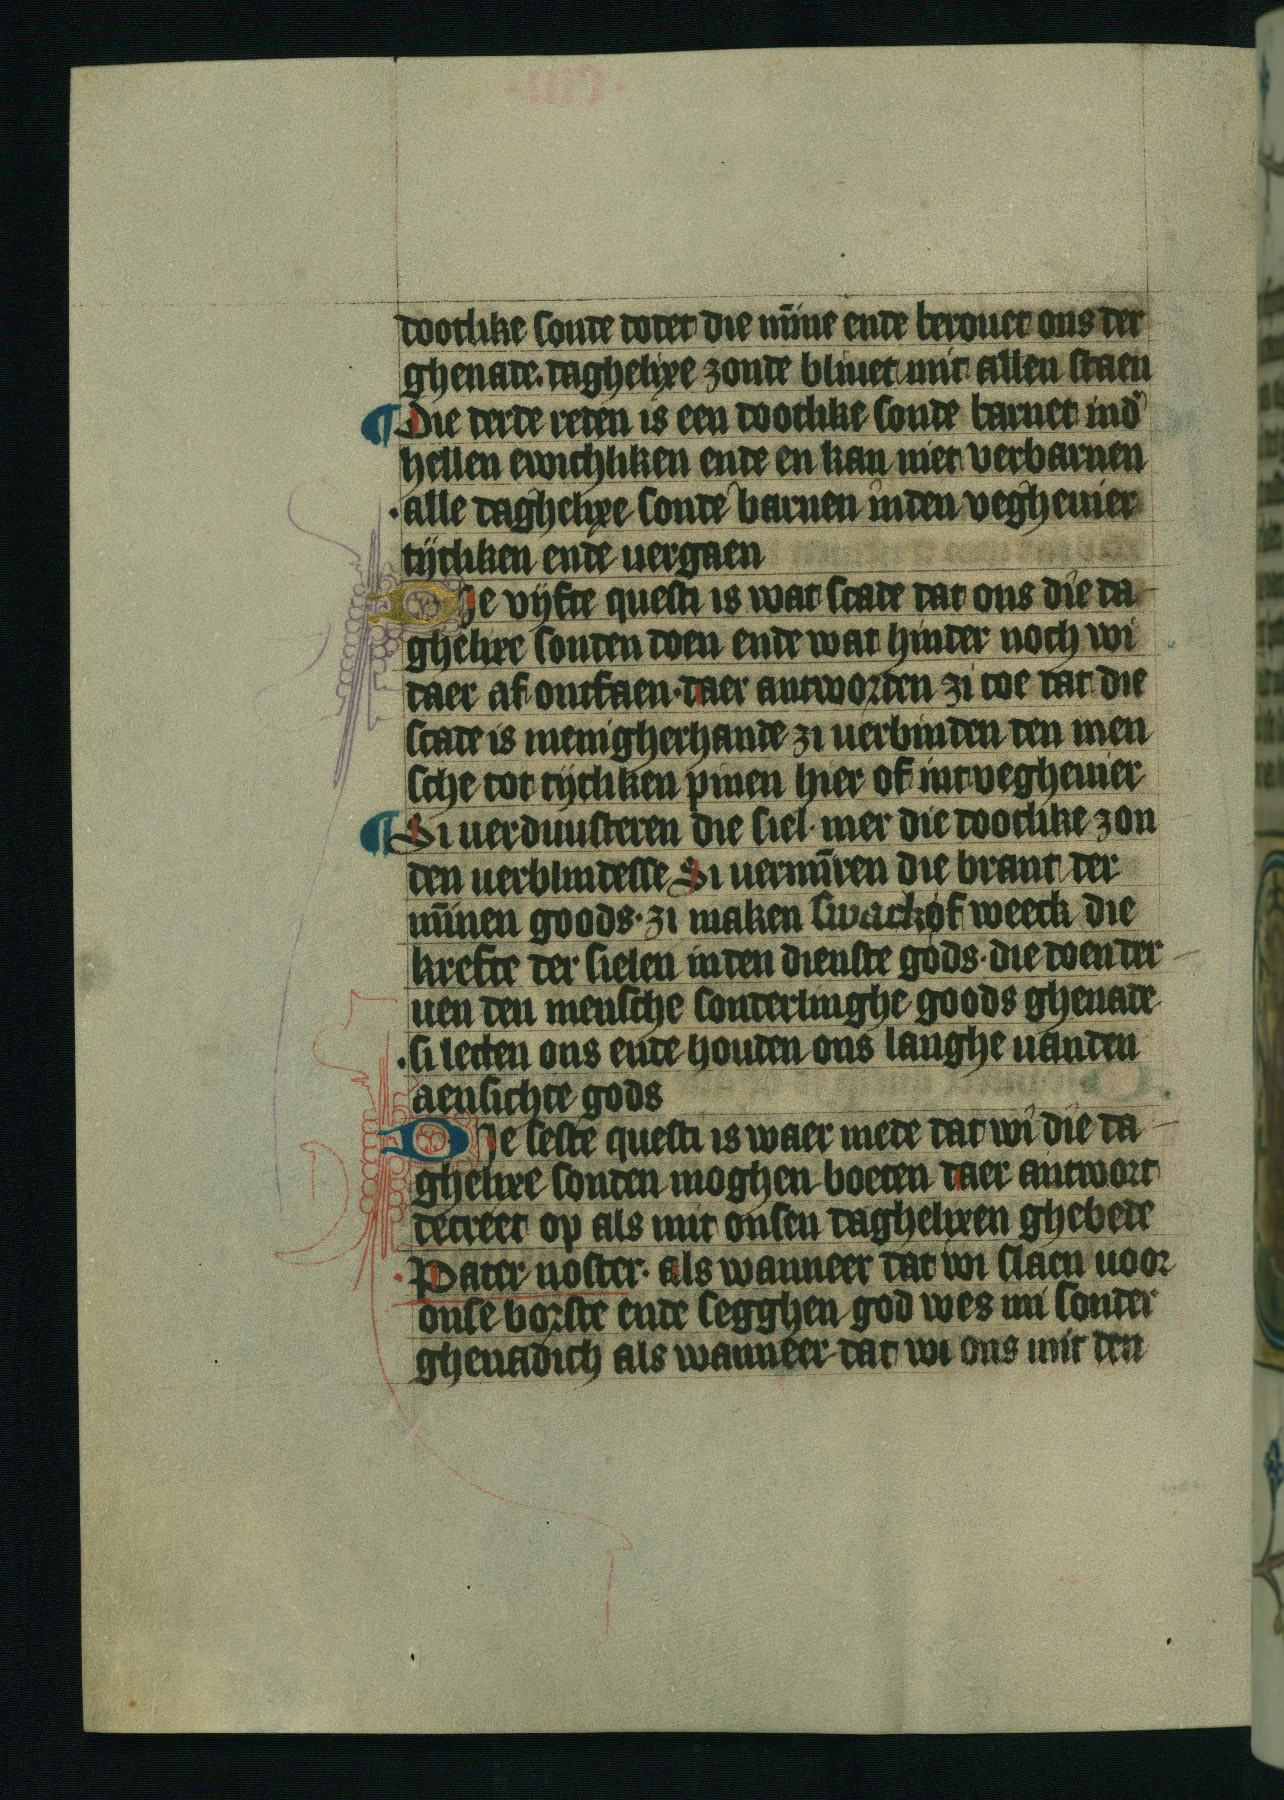 dootlike sonde dodet die mīne ende berouet ons der
ghenade. daghelixe zonde bliuet mit allen staen
¶ Die derde reden is een dootlike sonde barnet ind'
hellen ewichliken ende en kan niet verbarnen
alle daghelixe sonde barnen inden veghevier
tijtliken ende uergaen
Die vijfte questi is wat scade dat ons die da
ghelixe sonden doen ende wat hinder noch wi
daer af ontfaen· daer antworden zi toe dat die
scade is menigherhande zi uerbinden den men
sche tot tijtliken pinen hier of int veghevier
¶ Si uerduusteren die siel· mer die dootlike zon
den uerblindesse Si uermīren die brant der
mīnen goods· zi maken swack of weeck die
krefte der sielen inden dienste gods· die doen der
uen den mensche sonderlinghe goods ghenade
si letten ons ende houden ons langhe uanden
aensichte gods
Die seste questi is waer mede dat wi die da
ghelixe sonden moghen boeten daer antwort
decreet op als mit onsen daghelixen ghebede
Pater noster· als wanneer dat wi slaen uoor
onse borste ende segghen god wes mi sonder
ghenadich als wanneer dat wi ons mit den